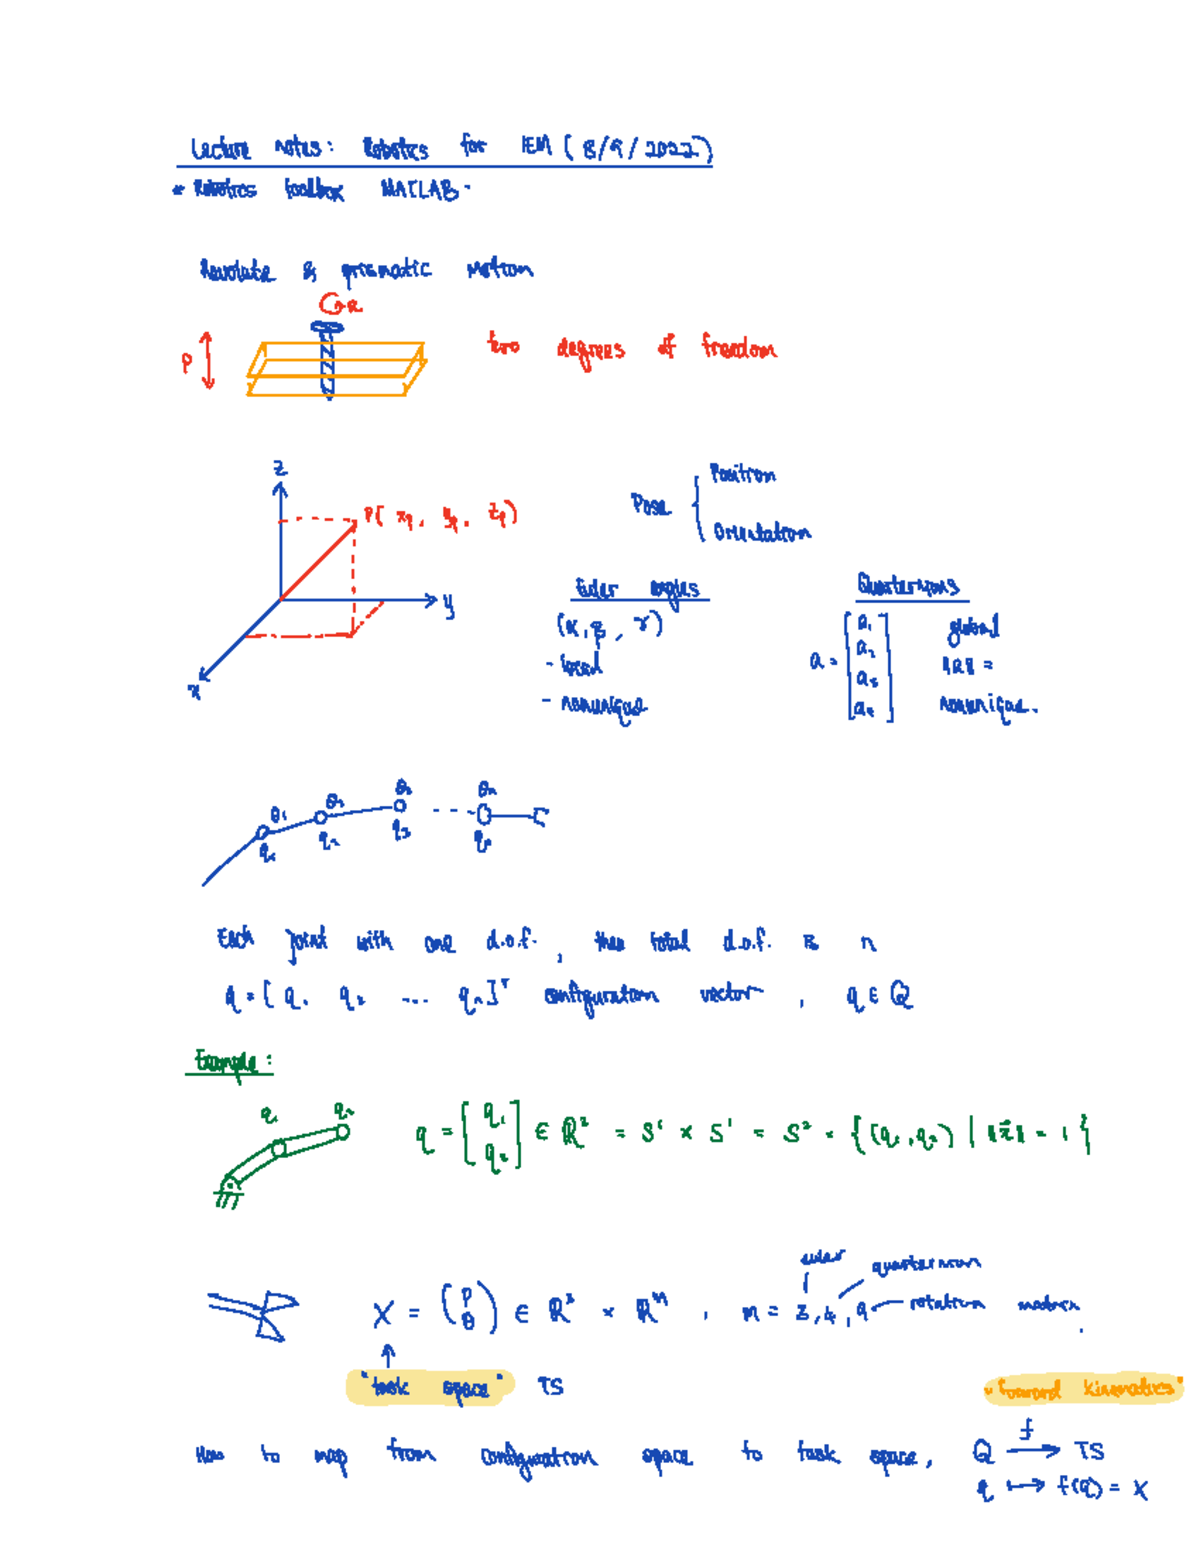 Lecture notes: Robotics for IEM (8/9/2022)
* Robotics toolbox MATLAB.
Revolute & prismatic motion
R
P
two degrees of freedom
z
P( xp, yp, zp)
y
x
Pose { Position
Orientation
Euler angles
(α, β, γ)
- local
- nonunique
Quaternions
a = [a1 a2 a3 a4]
global
nonunique.
θ1 θ2 θ3 θn
q1 q2 q3 qn
Each joint with one d.o.f., then total d.o.f. is n
q = [ q1 q2 ... qn]ᵀ configuration vector, q ∈ Q
Example:
q1 q2
q = [q1 q2] ∈ ℝ² = S¹ × S¹ = S² = {(q1, q2) | ‖x⃗‖ = 1}
euler quaternion
X = (P θ) ∈ ℝ³ × ℝᵐ, m = 3, 4, 9 rotation matrix.
"task space" TS
"forward kinematics"
How to map from configuration space to task space, Q f→ TS
q ↦ f(q) = X